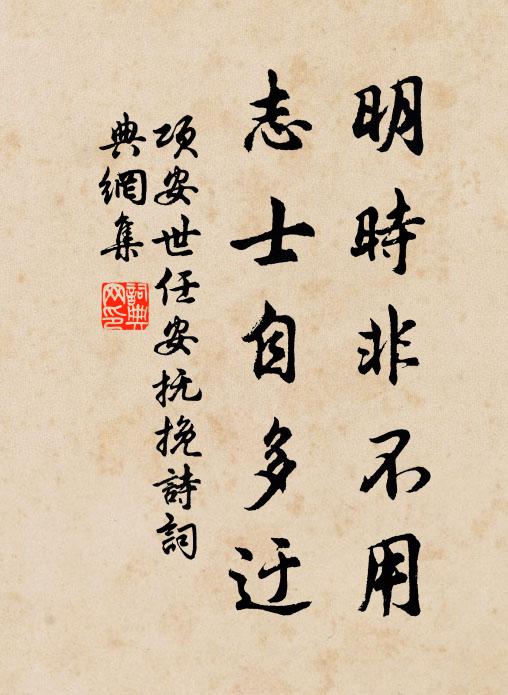 明時非不用
志士自多迂
項安世任安抚挽詩詞
典網集
詞典
网印